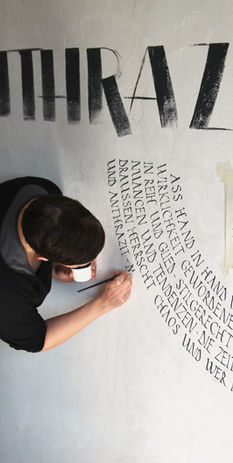 THRAZ
ASS HAND IN HAND
WIRKLICHKEIT GEWORDENE
IN REIH UND GLIED. STILGERECHT
NUANCEN UND TENDENZEN. DIE ZEIT
DRAUSSEN HERRSCHT CHAOS UND WER
UND ANTHRAZIT-